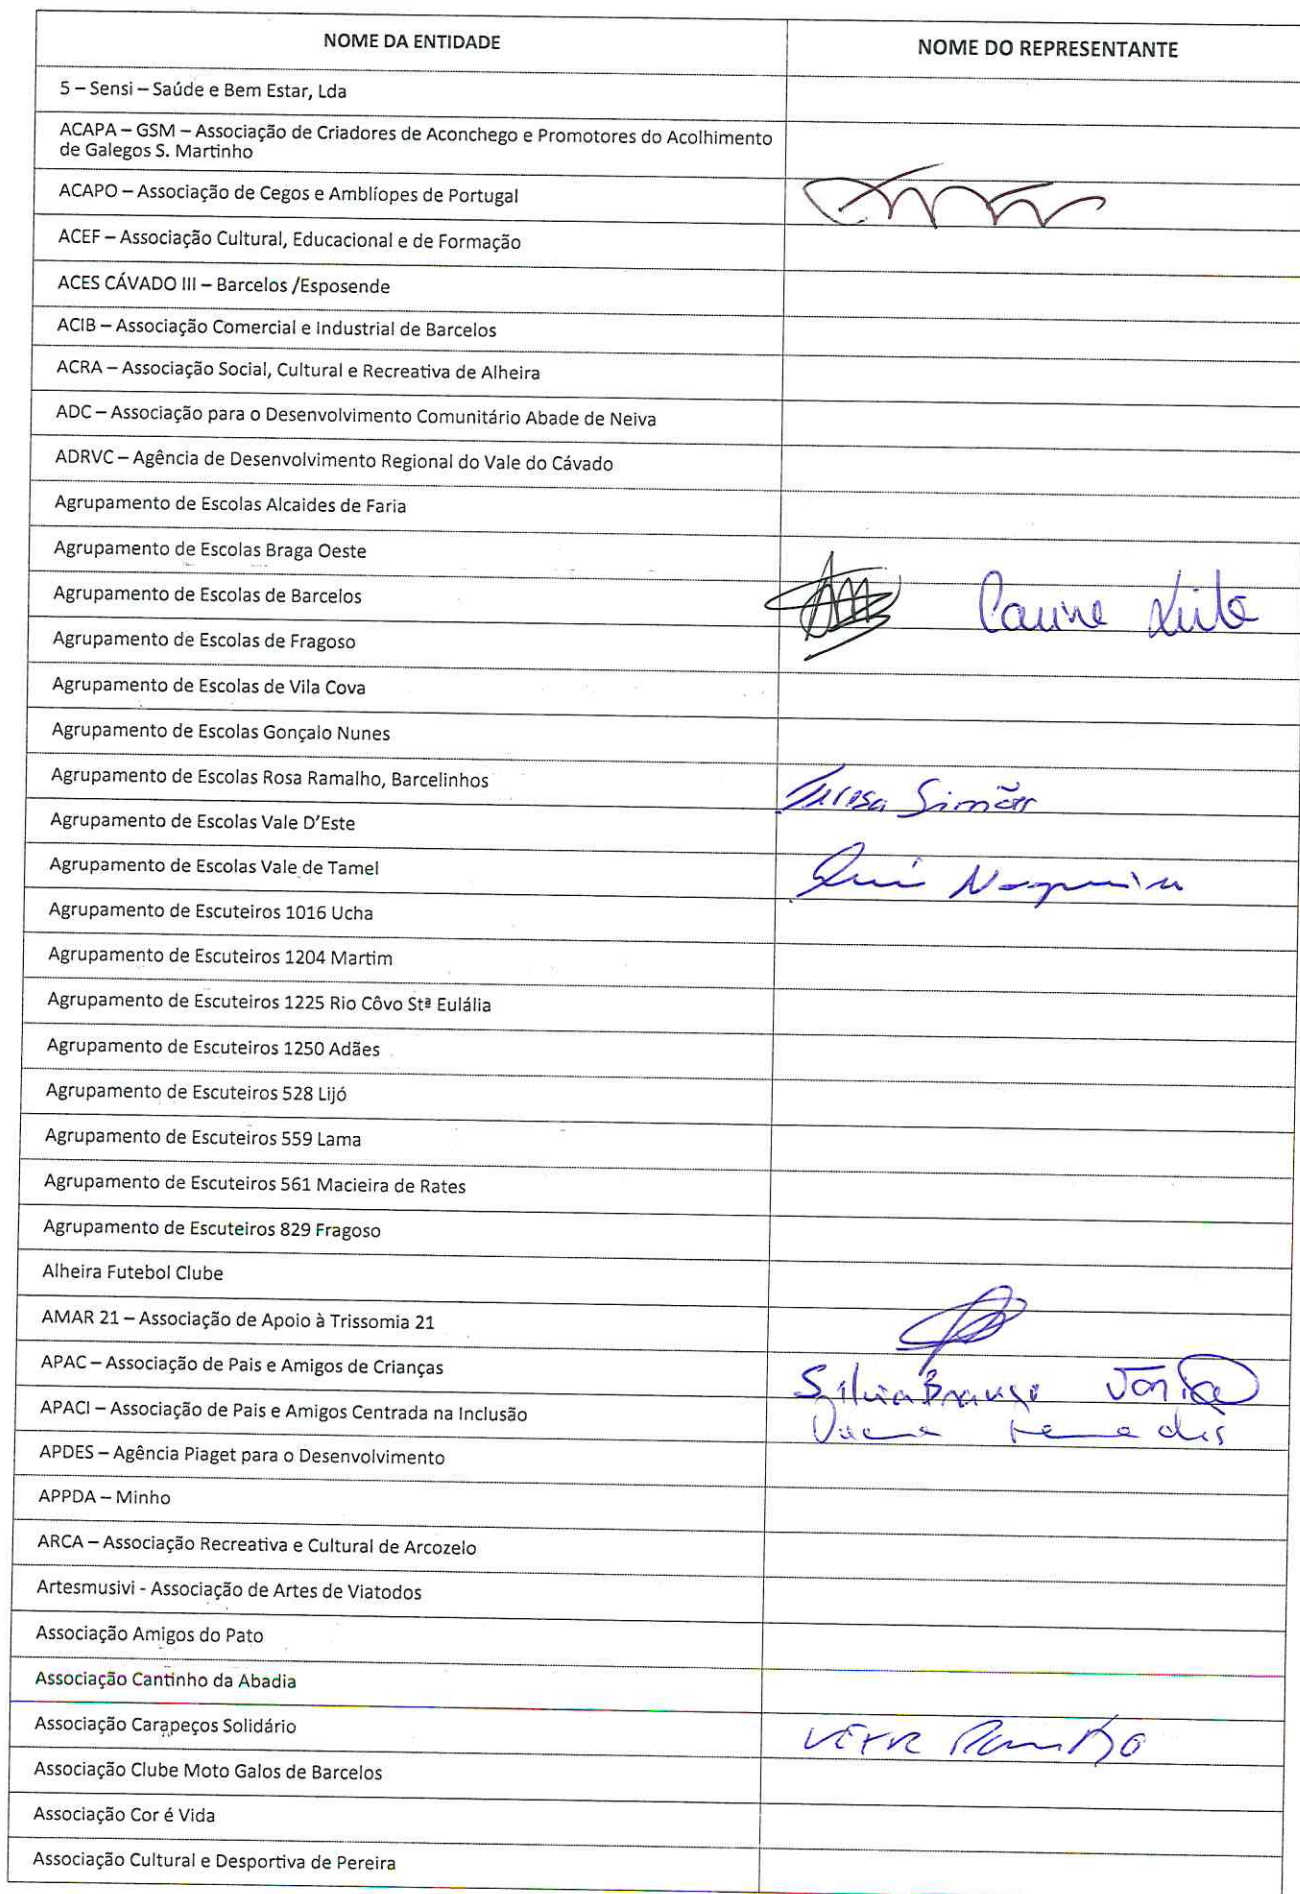 NOME DA ENTIDADE NOME DO REPRESENTANTE
5 – Sensi – Saúde e Bem Estar, Lda
ACAPA – GSM – Associação de Criadores de Aconchego e Promotores do Acolhimento
de Galegos S. Martinho
ACAPO – Associação de Cegos e Amblíopes de Portugal
ACEF – Associação Cultural, Educacional e de Formação
ACES CÁVADO III – Barcelos /Esposende
ACIB – Associação Comercial e Industrial de Barcelos
ACRA – Associação Social, Cultural e Recreativa de Alheira
ADC – Associação para o Desenvolvimento Comunitário Abade de Neiva
ADRVC – Agência de Desenvolvimento Regional do Vale do Cávado
Agrupamento de Escolas Alcaides de Faria
Agrupamento de Escolas Braga Oeste
Agrupamento de Escolas de Barcelos
Agrupamento de Escolas de Fragoso
Agrupamento de Escolas de Vila Cova
Agrupamento de Escolas Gonçalo Nunes
Agrupamento de Escolas Rosa Ramalho, Barcelinhos Teresa Simões
Agrupamento de Escolas Vale D'Este
Agrupamento de Escolas Vale de Tamel Nogueira
Agrupamento de Escuteiros 1016 Ucha
Agrupamento de Escuteiros 1204 Martim
Agrupamento de Escuteiros 1225 Rio Côvo Stª Eulália
Agrupamento de Escuteiros 1250 Adães
Agrupamento de Escuteiros 528 Lijó
Agrupamento de Escuteiros 559 Lama
Agrupamento de Escuteiros 561 Macieira de Rates
Agrupamento de Escuteiros 829 Fragoso
Alheira Futebol Clube
AMAR 21 – Associação de Apoio à Trissomia 21
APAC – Associação de Pais e Amigos de Crianças Sílvia
APACI – Associação de Pais e Amigos Centrada na Inclusão
APDES – Agência Piaget para o Desenvolvimento
APPDA – Minho
ARCA – Associação Recreativa e Cultural de Arcozelo
Artesmusivi - Associação de Artes de Viatodos
Associação Amigos do Pato
Associação Cantinho da Abadia
Associação Carapeços Solidário
Associação Clube Moto Galos de Barcelos
Associação Cor é Vida
Associação Cultural e Desportiva de Pereira